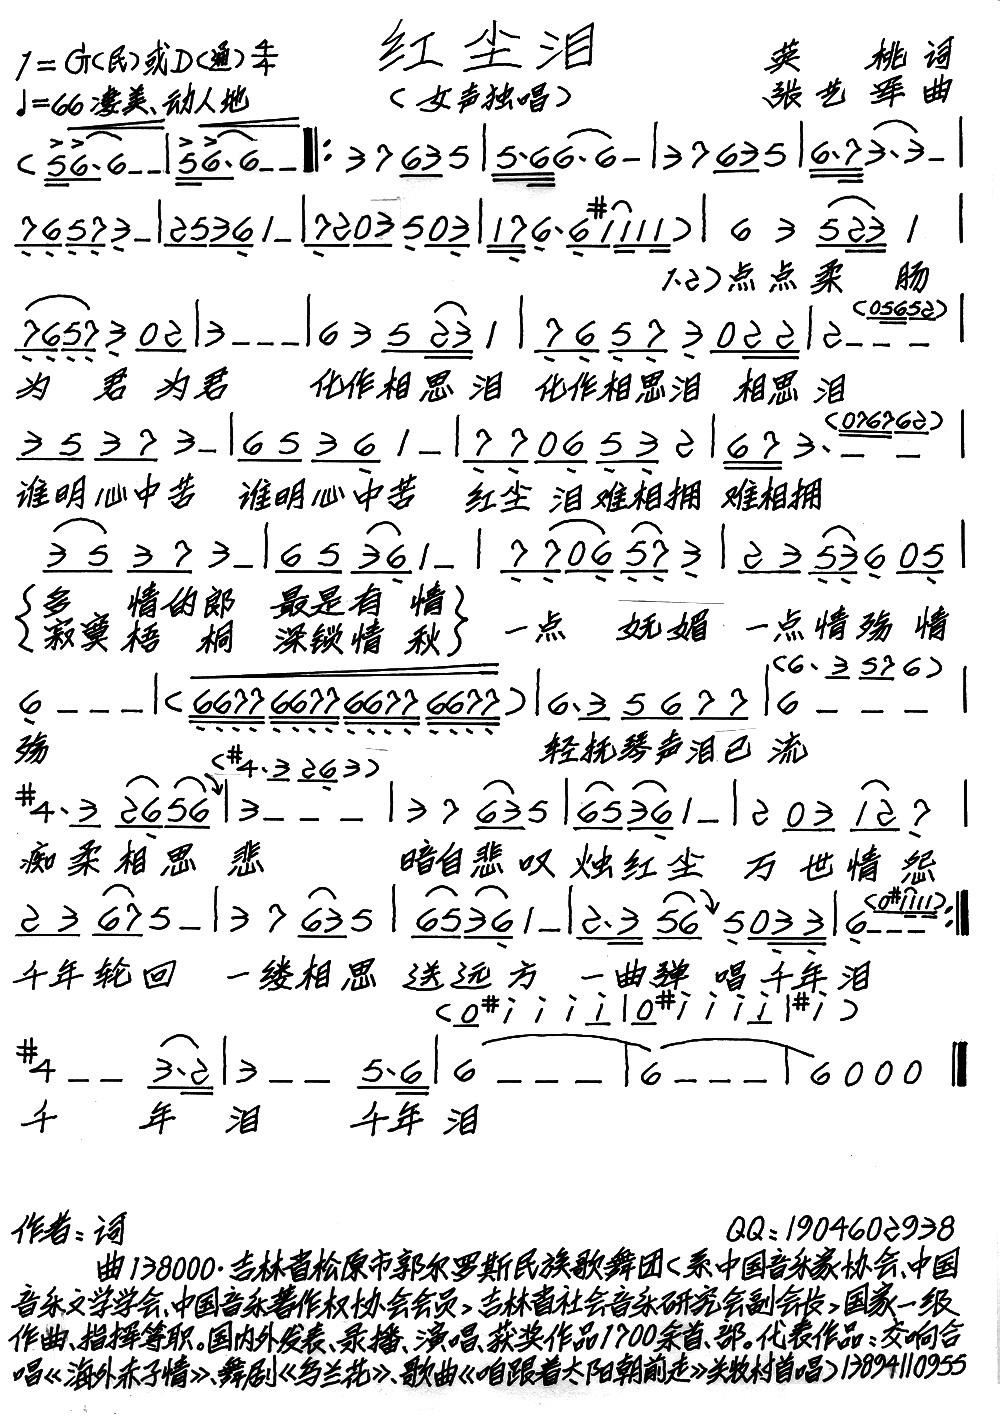 红尘泪
1=G(民)或D(通) 4/4
英 桃 词
♩=66 凄美、动人地
(女声独唱)
张艺军 曲
(56·6--|56·6--‖:37635|5·66·6-|37635|6·73·3-|
76573-|25361-|7203503|176·6#1111)|6 3 523 1|
1.2)点点柔 肠
7657302|3---|63523 1|76573022|2---(05652)|
为 君 为君 化作相思泪 化作相思泪 相思泪
35373-|65361-|7706532|673·--(076762)|
谁明心中苦 谁明心中苦 红尘 泪难相拥 难相拥
35373-|65361-|7706573|2353605|
多 情的郎 最是有 情
寂寞梧 桐 深锁情 秋
一点 妩媚 一点情殇情
6---|(6677 6677 6677 6677)|6·35677|6---(6·3576)
殇 轻抚琴声泪已流
(#4·3263)
#4·32656|3---|37635|65361-|203127|
痴柔相思 悲 暗自悲叹 烛红尘 万世情怨
23675-|37635|65361-|2·3565033|6---(0#1111):‖
千年轮回 一缕相思 送远方 一曲弹 唱千年泪
(0#i i i i i|0#i i i i i|#i)
#4--3·2|3--5·6|6---|6---|6000‖
千 年 泪 千年泪
作者:词
QQ:1904602938
曲138000·吉林省松原市郭尔罗斯民族歌舞团<系中国音乐家协会、中国
音乐文学学会、中国音乐著作权协会会员>吉林省社会音乐研究会副会长>国家一级
作曲、指挥等职。国内外发表、录播、演唱、获奖作品1700余首、部。代表作品:交响合
唱《海外赤子情》、舞剧《乌兰花》、歌曲《咱跟着太阳朝前走》关牧村首唱)13894110955